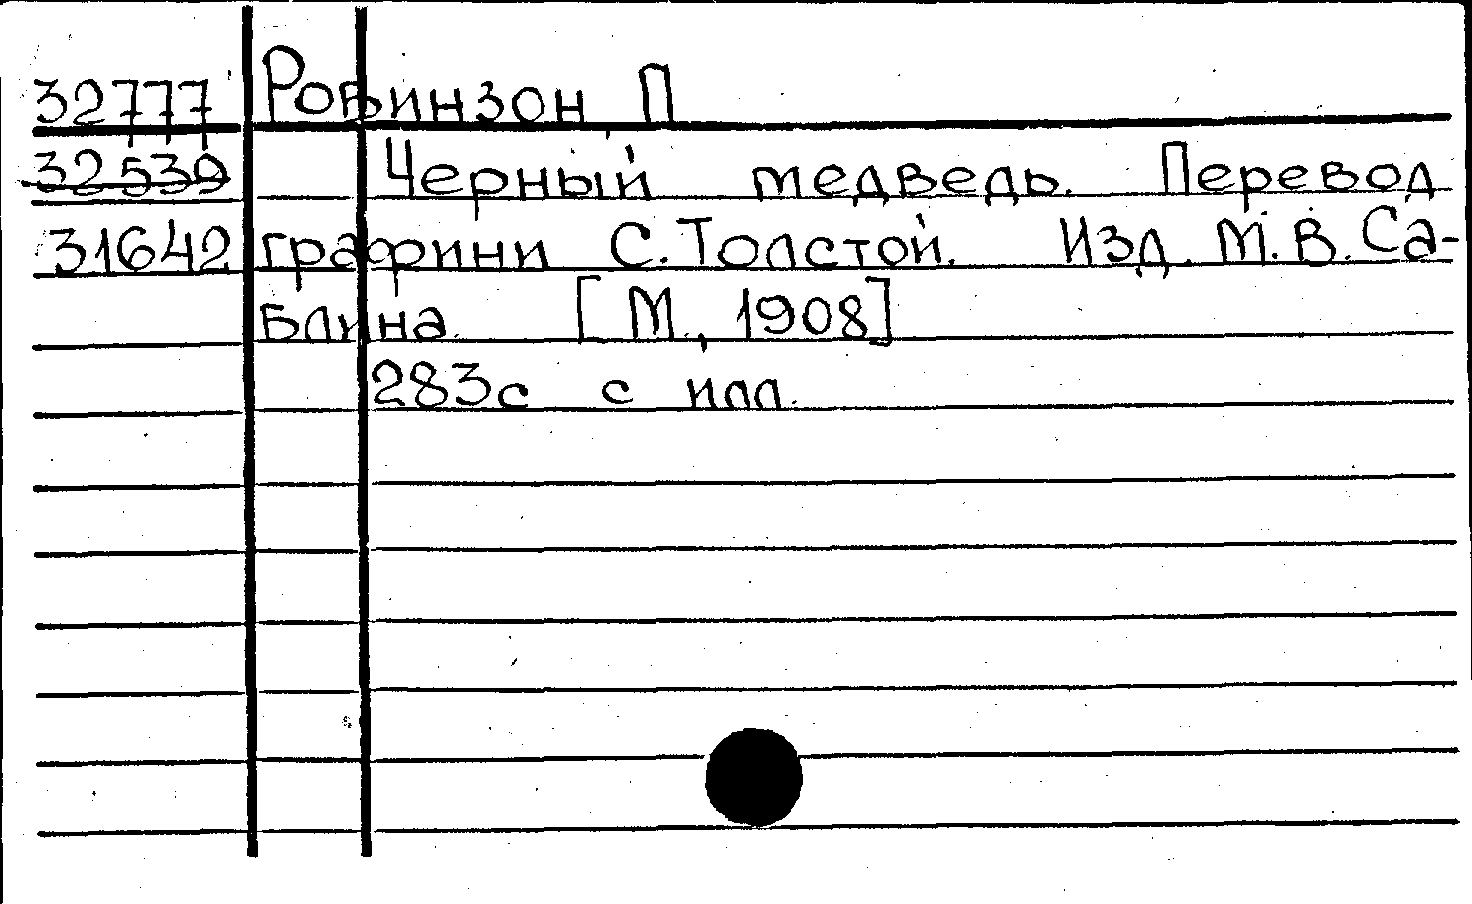 32777 Робинзон П
32539 Черный медведь. Перевод
31642 графини С. Толстой. Изд. М. В. Са-
блина. [М., 1908]
283с с илл.